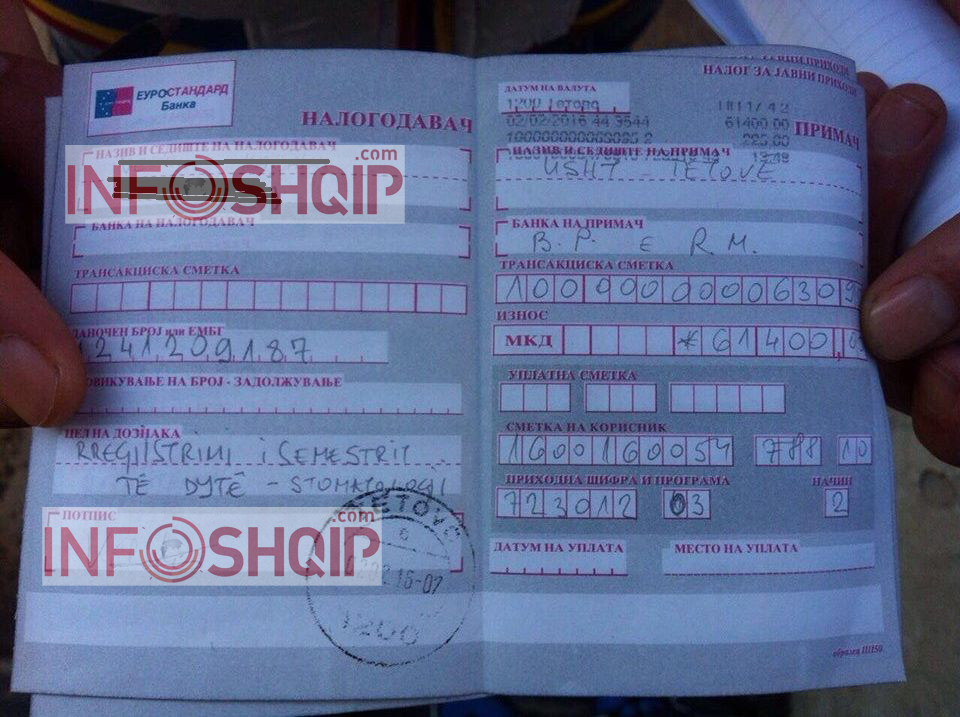 ЕУРОСТАНДАРД
Банка
НАЛОГОДАВАЧ
НАЗИВ И СЕДИШТЕ НА НАЛОГОДАВАЧ
INFOSHQIP
.com
БАНКА НА НАЛОГОДАВАЧ
ТРАНСАКЦИСКА СМЕТКА
ДАНОЧЕН БРОЈ или ЕМБГ
1241209187
ПОВИКУВАЊЕ НА БРОЈ - ЗАДОЛЖУВАЊЕ
ЦЕЛ НА ДОЗНАКА
RREGJISTRIMI i SEMESTRIT
TË DYTË - STOMATOLOGJI
ПОТПИС
INFOSHQIP
.com
TETOVO
1200
НАЛОГ ЗА ЈАВНИ ПРИХОДИ
ДАТУМ НА ВАЛУТА
1200 Тетово
02/02/2016 44 3544
61400.00
ПРИМАЧ
НАЗИВ И СЕДИШТЕ НА ПРИМАЧ
USHT - TETOVË
БАНКА НА ПРИМАЧ
B.P. E R.M.
ТРАНСАКЦИСКА СМЕТКА
100000000063095
ИЗНОС
МКД *61400,
УПЛАТНА СМЕТКА
СМЕТКА НА КОРИСНИК
1600160054 788 10
ПРИХОДНА ШИФРА И ПРОГРАМА НАЧИН
723012 03 2
ДАТУМ НА УПЛАТА МЕСТО НА УПЛАТА
образец ПП50